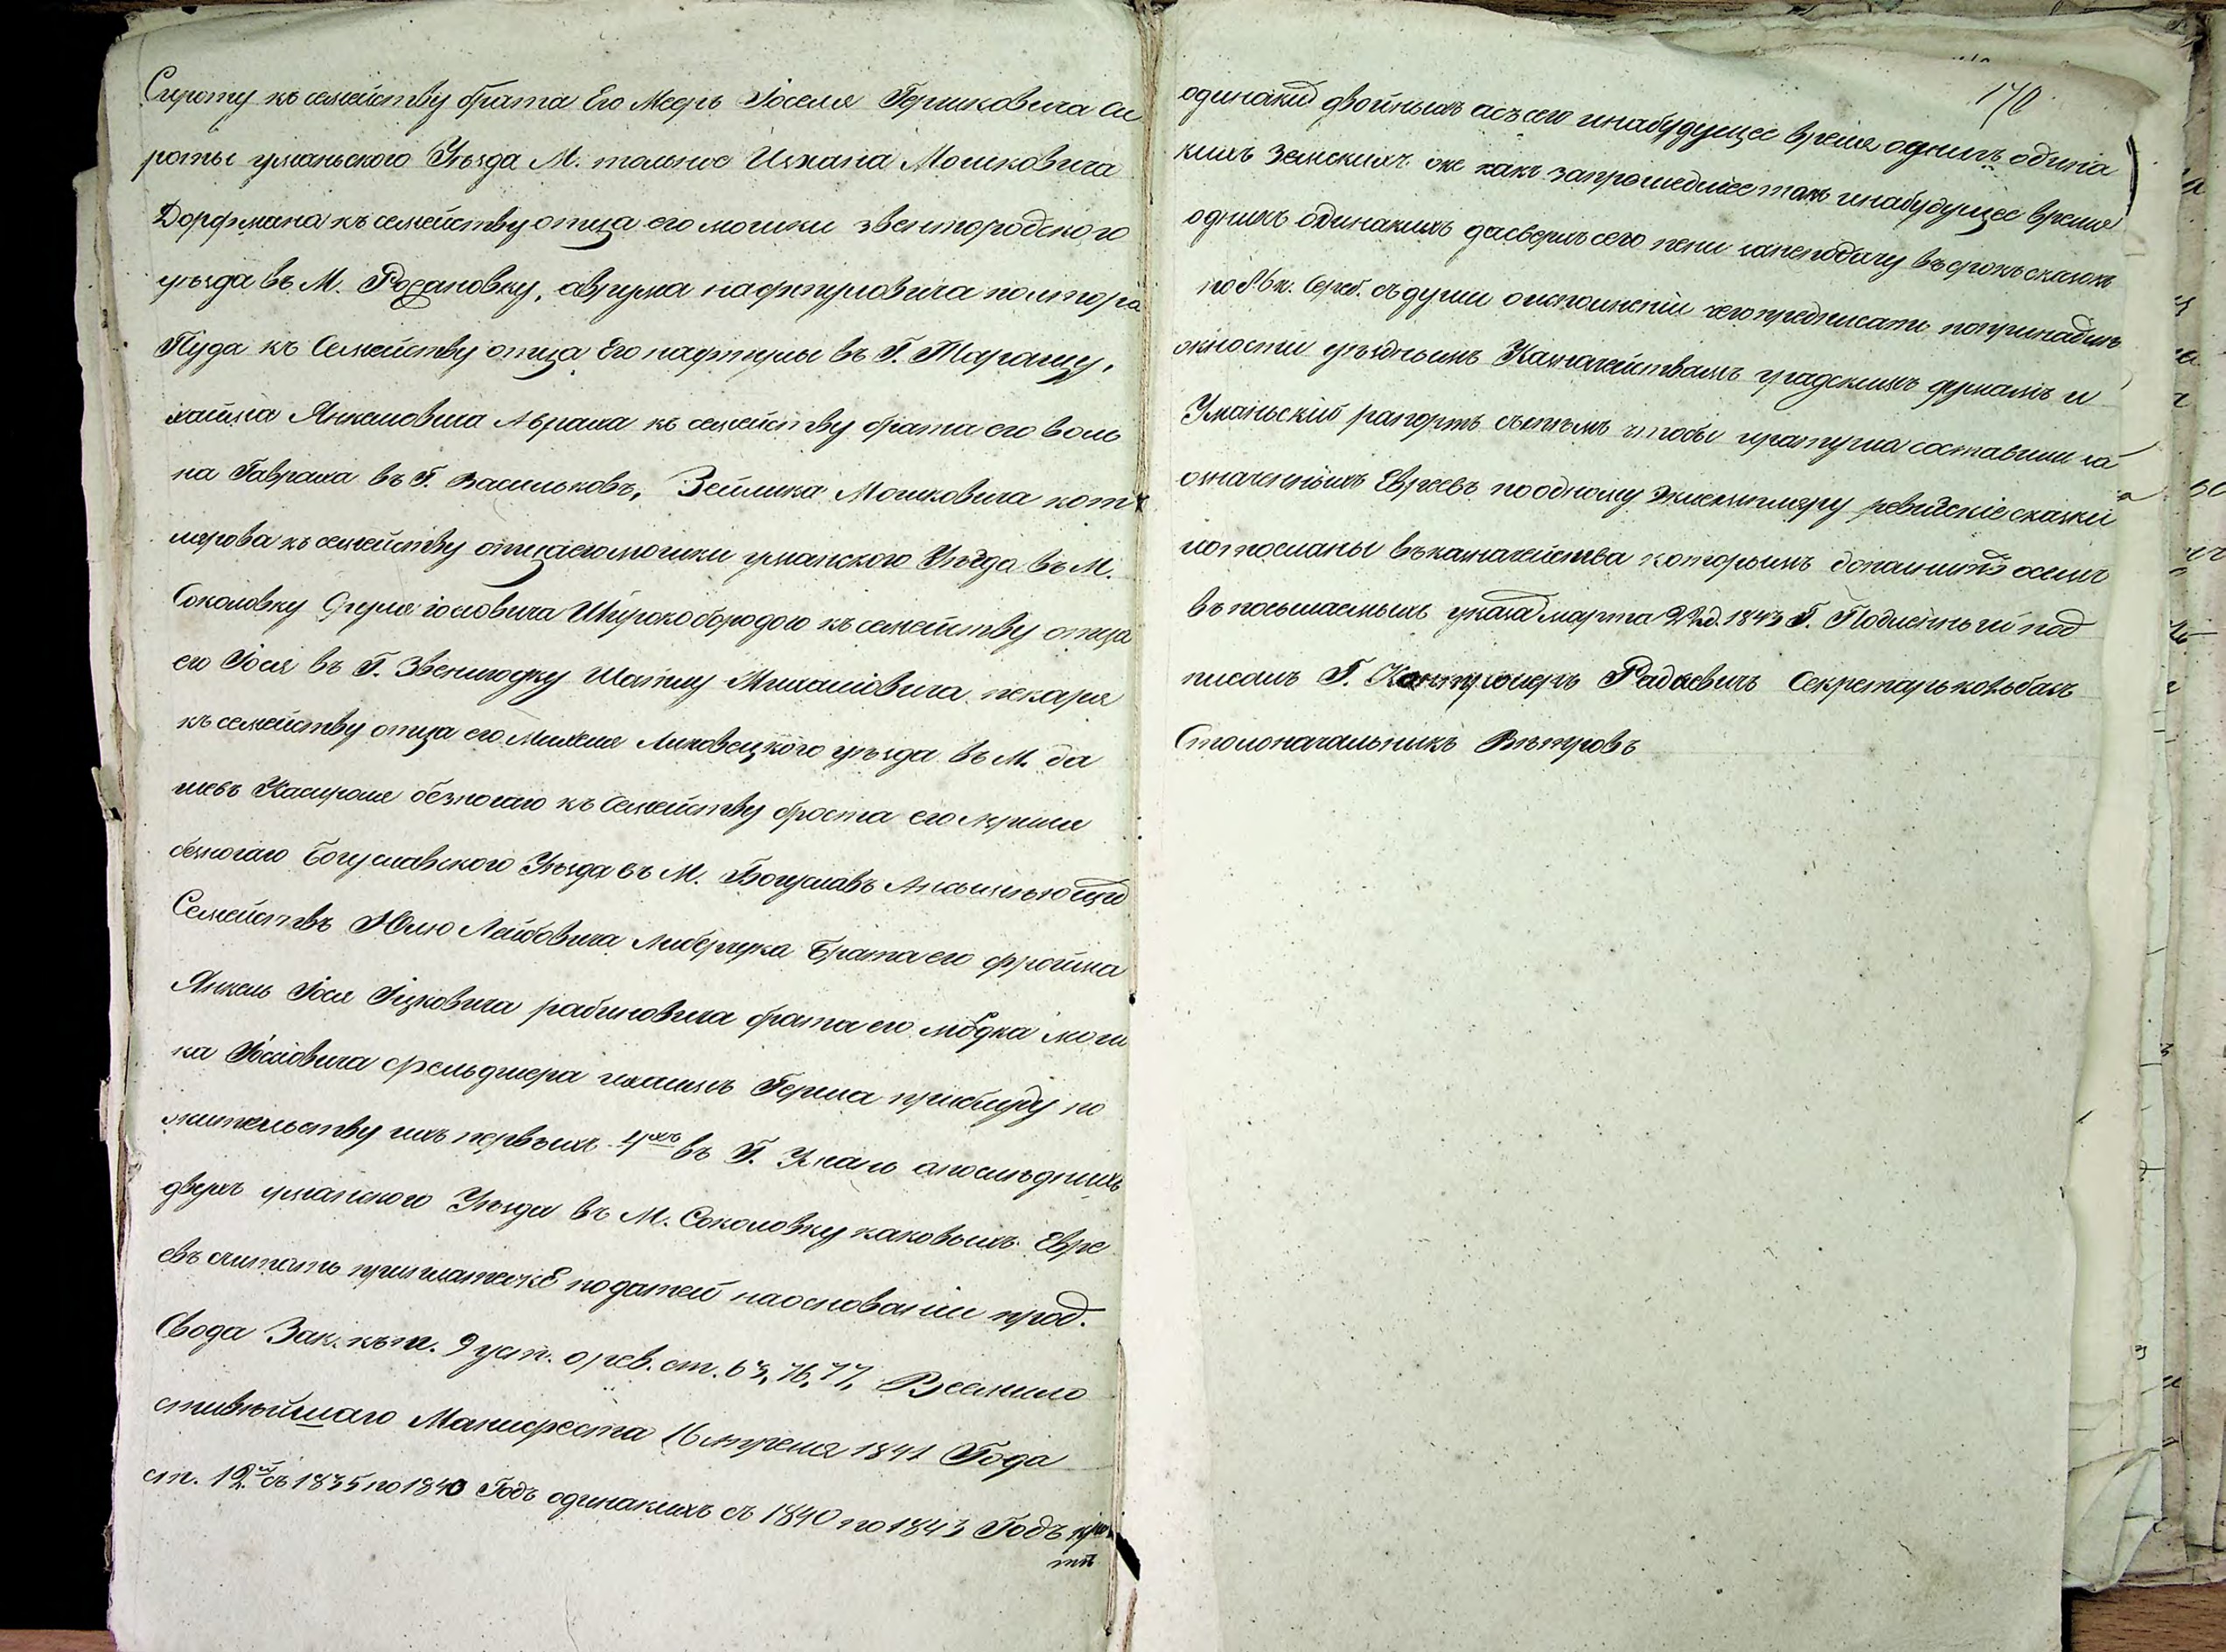 Сироту къ семейству брата Его Меръ Іоселя Гершковича си
роты уманьского Уѣзда М. тальное Ицхана Мошковича
Дорфмана къ семейству отца его мошки звенигородского
уѣзда въ М. Рожановку, аврума нафтуловича полтора
Пуда къ Семейству отца Его нафтулы въ Г. Таращу,
хаима Янкелевича Аврама къ семейству брата его воль
ка Гаврама въ Г. Васильковъ, Зейлика Мошковича кот
лярова къ семейству отца его мошки уманского Уѣзда въ М.
Соколовку Сруля іосіовича Широкобородого къ семейству отца
его Іося въ Г. Звенигодку Шапшу Михаліовича пекаря
къ семейству отца его Михеля Липовецкого уѣзда въ М. да
шевъ безногаго къ Семейству брата его
безногаго Богуславского Уѣзда въ М. Богуславъ
Семействъ Юлю Лейбовича Брата его фроима
Янкель Іося Іцковича рабиновича брата его мордка мош
ка Іосіовича фельдшера Герша приблуду по
жительству ихъ первыхъ 4ухъ въ Г. Умань а послѣднихъ
двухъ уманского Уѣзда въ М. Соколовку каковыхъ Евре
евъ считать при платежѣ податей на основаніи прод.
Свода Зак. къ т. 9 уст. о рев. ст. 63, 76, 77, Всемило
стивѣйшаго Манифеста 16 апреля 1841 Года
ст. 12й съ 1835 по 1840 Годъ одинакихъ съ 1840 по 1843 Годъ про
тѣ
170
одинакид двойныхъ а съ сего и на будущее время однихъ одина
кихъ Земскихъ же какъ за прошедшее такъ и на будущее время
однихъ одинакихъ да сверхъ сего пени за неподачу въ срокъ сказокъ
по 86 к. Сереб. съ души о исполненіи чего предписать по принадле
жности уѣзднымъ Казначействамъ градскимъ думамъ и
Уманьской рапортъ съ тѣмъ чтобы и ратуша составили на
означенныхъ Евреевъ по одному Экземпляру ревизскіе сказки
и отосланы въ казначейства которымъ
въ посылаемыхъ указа марта 22 д. 1843 Г. Подлинный под
писалъ Г. Контролеръ Радкевичъ Секретарь
Столоначальникъ Вѣтровъ